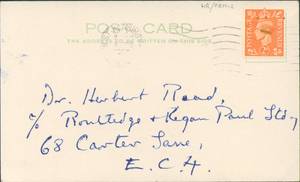 POST CARD
THE ADDRESS TO BE WRITTEN ON THIS SIDE
POSTAGE
Dr. Herbert Read,
c/o Routledge & Kegan Paul Ltd,
68 Carter Lane,
E.C.4.